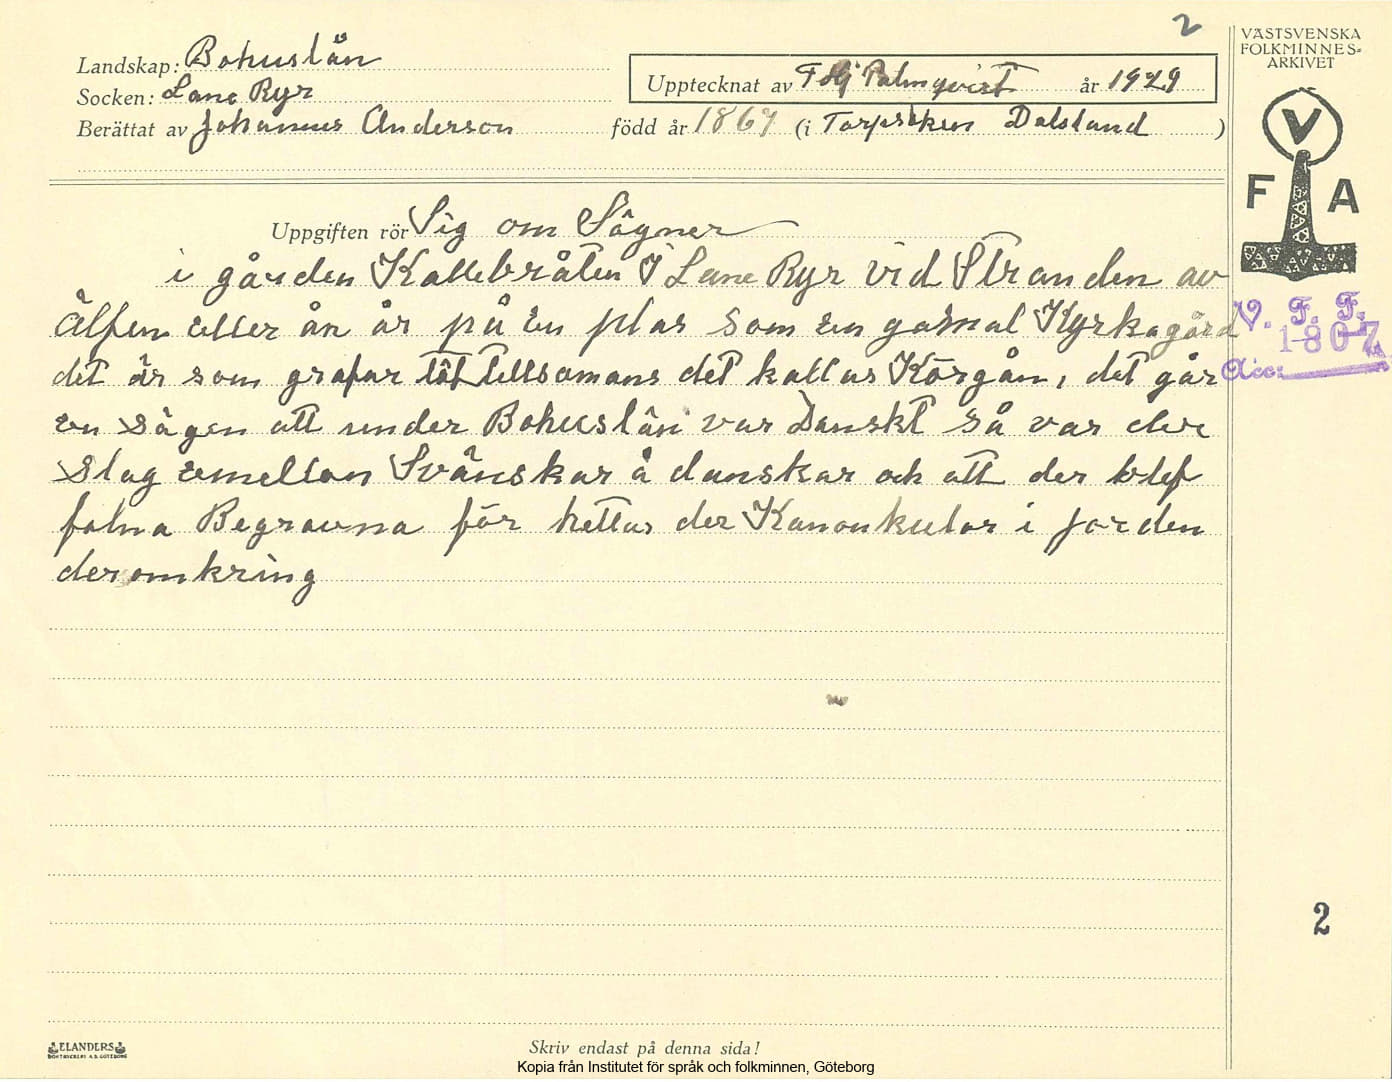 2
VÄSTSVENSKA
FOLKMINNES=
ARKIVET
Landskap: Bohuslän
Socken: Lane Ryr
Upptecknat av F Hj Palmqvist år 1929
Berättat av Johannes Anderson född år 1867 (i Torpsoken Dalsland)
V
F A
Uppgiften rör Sig om Sägner
i gården Kallebråten I Lane Ryr vid Stranden av
Älfen eller ån är på en plas som en gamal Kyrkagård
det är som grafar tät tillsamans det kallas Körgån, det går
en sägen att under Bohuslän var Danskt så var der
slag emellan Svänskar å danskar och att der blef
falna Begravna för hittas der Kanonkulor i jorden
deromkring
V. F. F.
1807
Acc:
2
ELANDERS
BOKTRYCKERI A.B. GÖTEBORG
Skriv endast på denna sida!
Kopia från Institutet för språk och folkminnen, Göteborg